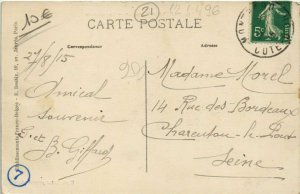 10€
CARTE POSTALE
21
Correspondance
Adresse
27/8/15
Amical
souvenir
E. et
B. Giffard
Madame Morel
14 Rue des Bordeaux
Charenton le Pont
Seine
7